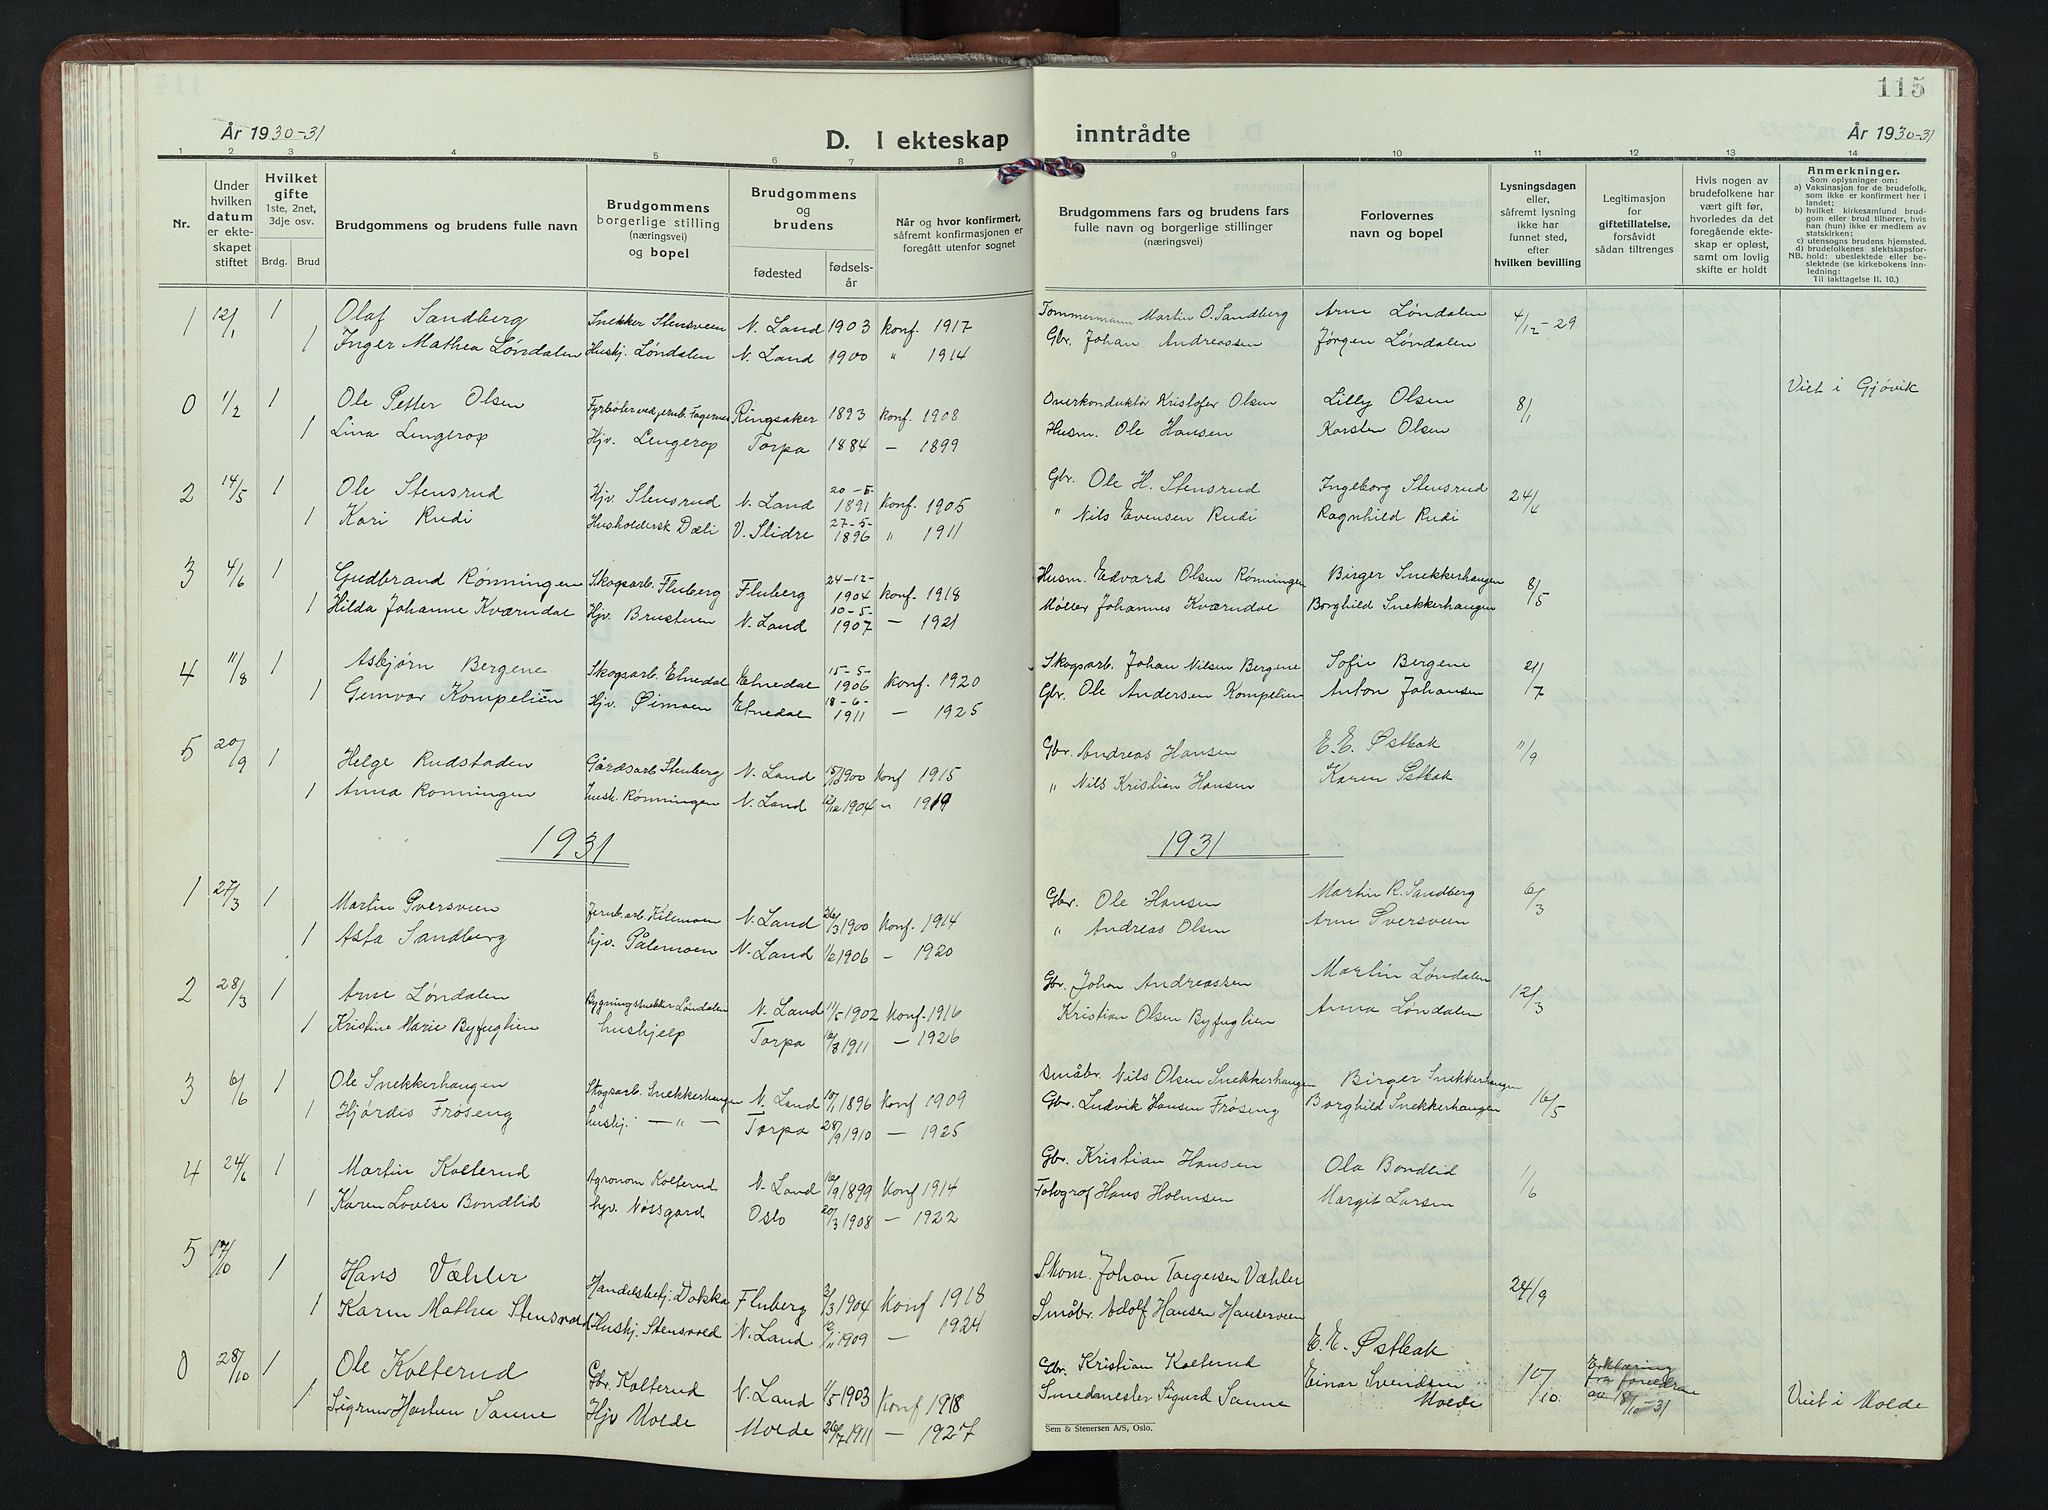 115
År 1930-31
D. I ekteskap inntrådte
År 1930-31
1 2 3 4 5 6 7 8 9 10 11 12 13 14
Nr.
Under hvilken datum er ekteskapet stiftet
Hvilket gifte 1ste, 2net, 3dje osv.
Brdg. Brud
Brudgommens og brudens fulle navn
Brudgommens borgerlige stilling (næringsvei) og bopel
Brudgommens og brudens
fødested
fødselsår
Når og hvor konfirmert, såfremt konfirmasjonen er foregått utenfor sognet
Brudgommens fars og brudens fars fulle navn og borgerlige stillinger (næringsvei)
Forlovernes navn og bopel
Lysningsdagen eller, såfremt lysning ikke har funnet sted, efter hvilken bevilling
Legitimasjon for giftetillatelse, forsåvidt sådan tiltrenges
Hvis nogen av brudefolkene har vært gift før, hvorledes da det foregående ekteskap er opløst, samt om lovlig skifte er holdt
Anmerkninger.
Som oplysninger om:
a) Vaksinasjon for de brudefolk, som ikke er konfirmert her i landet;
b) hvilket kirkesamfund brudgom eller brud tilhører, hvis han (hun) ikke er medlem av statskirken;
c) utensogns brudens hjemsted.
d) brudefolkenes slektskapsforhold: ubeslektede eller beslektede (se kirkebokens innledning:
NB. Til iakttagelse II. 10.)
1 12/1 1 Olaf Sandberg Snekker Stensveen N. Land 1903 konf. 1917 Tømmermann Martin O. Sandberg Arne Løndalen 4/12-29
1 Inger Mathea Løndalen Hushj. Løndalen N. Land 1900 " 1914 Gbr. Johan Andreassen Jørgen Løndalen
0 1/2 1 Ole Petter Olsen Fyrbøter ved jernb. Fagernes Ringsaker 1893 konf. 1908 Overkonduktør Kristofer Olsen Lilly Olsen 8/1 Viet i Gjøvik
1 Lina Lengerop Hjv. Lengerop Torpa 1884 - 1899 Husm. Ole Hansen Karsten Olsen
2 14/5 1 Ole Stensrud Hjv. Stensrud N. Land 20-5-1891 konf. 1905 Gbr. Ole H. Stensrud Ingeborg Stensrud 24/4
1 Kari Rudi Husholdersk Dæli V. Slidre 27-5-1896 " 1911 " Nils Evensen Rudi Ragnhild Rudi
3 4/6 1 Gudbrand Rønningen Skogsarb. Fluberg Fluberg 24-12-1904 konf. 1918 Husm. Edvard Olsen Rønningen Birger Snekkerhaugen 8/5
1 Hilda Johanne Kværndal Hjv. Brustuen N. Land 10-5-1907 - 1921 Møller Johannes Kværndal Borghild Snekkerhaugen
4 11/8 1 Asbjørn Bergene Skogsarb. Etnedal Etnedal 15-5-1906 konf. 1920 Skogsarb. Johan Nilsen Bergene Sofie Bergene 21/7
1 Gunvor Kompelien Hjv. Øimoen Etnedal 18-6-1911 - 1925 Gbr. Ole Andersen Kompelien Anton Johansen
5 20/9 1 Helge Rudstaden Gårdsarb. Stenberg N. Land 15/10 1900 konf 1915 Gbr. Andreas Hansen E. E. Østbak 11/9
1 Anna Rønningen hush. Rønningen N. Land 12/12 1904 " 1919 " Nils Kristian Hansen Karen Østbak
1931 1931
1 27/3 1 Martin Sversveen Jernb.arb. Kilemoen N. Land 26/3 1900 konf. 1914 Gbr. Ole Hansen Martin R. Sandberg 6/3
1 Asta Sandberg hjv. Pålemoen N. Land 1/2 1906 - 1920 " Andreas Olsen Arne Sversveen
2 28/3 1 Arne Løndalen Bygningssnekker Løndalen N. Land 11/5 1902 konf. 1916 Gbr. Johan Andreassen Martin Løndalen 12/3
1 Kristine Marie Byfuglien hushjelp Torpa 16/8 1911 - 1926 Kristian Olsen Byfuglien Anna Løndalen
3 6/6 1 Ole Snekkerhaugen Skogsarb. Snekkerhaugen N. Land 15/1 1896 konf 1909 Småbr. Nils Olsen Snekkerhaugen Birger Snekkerhaugen 16/5
1 Hjørdis Frøseng hushj. -"- Torpa 28/9 1910 - 1925 Gbr. Ludvik Hansen Frøseng Borghild Snekkerhaugen
4 24/6 1 Martin Kolterud Agronom Kolterud N. Land 16/9 1899 Konf 1914 Gbr. Kristian Hansen Ola Bondlid 1/6
1 Karen Lovise Bondlid hjv. Nøssgård Oslo 20/3 1908 - 1922 Fotograf Hans Holmsen Margit Larsen
5 17/10 1 Hans Væhler Handelsbetj. Dokka Fluberg 2/3 1904 Konf 1918 Skom. Johan Torgersen Væhler 24/9
1 Karen Mathea Stensvold Hushj. Stensvold N. Land 12/11 1909 - 1924 Småbr. Adolf Hansen Hanserveen E. E. Østbak
0 28/10 1 Ole Kolterud Gbr. Kolterud N. Land 1/5 1903 Konf 1918 Gbr. Kristian Kolterud Einar Svendsen 10/10 Erklæring fra foreldrene av 18/10-31
1 Sigrun Hartun Sanne Hjv Molde Molde 26/7 1911 - 1927 Smedmester Sigurd Sanne Molde Viet i Molde
Sem & Stenersen A/S, Oslo.